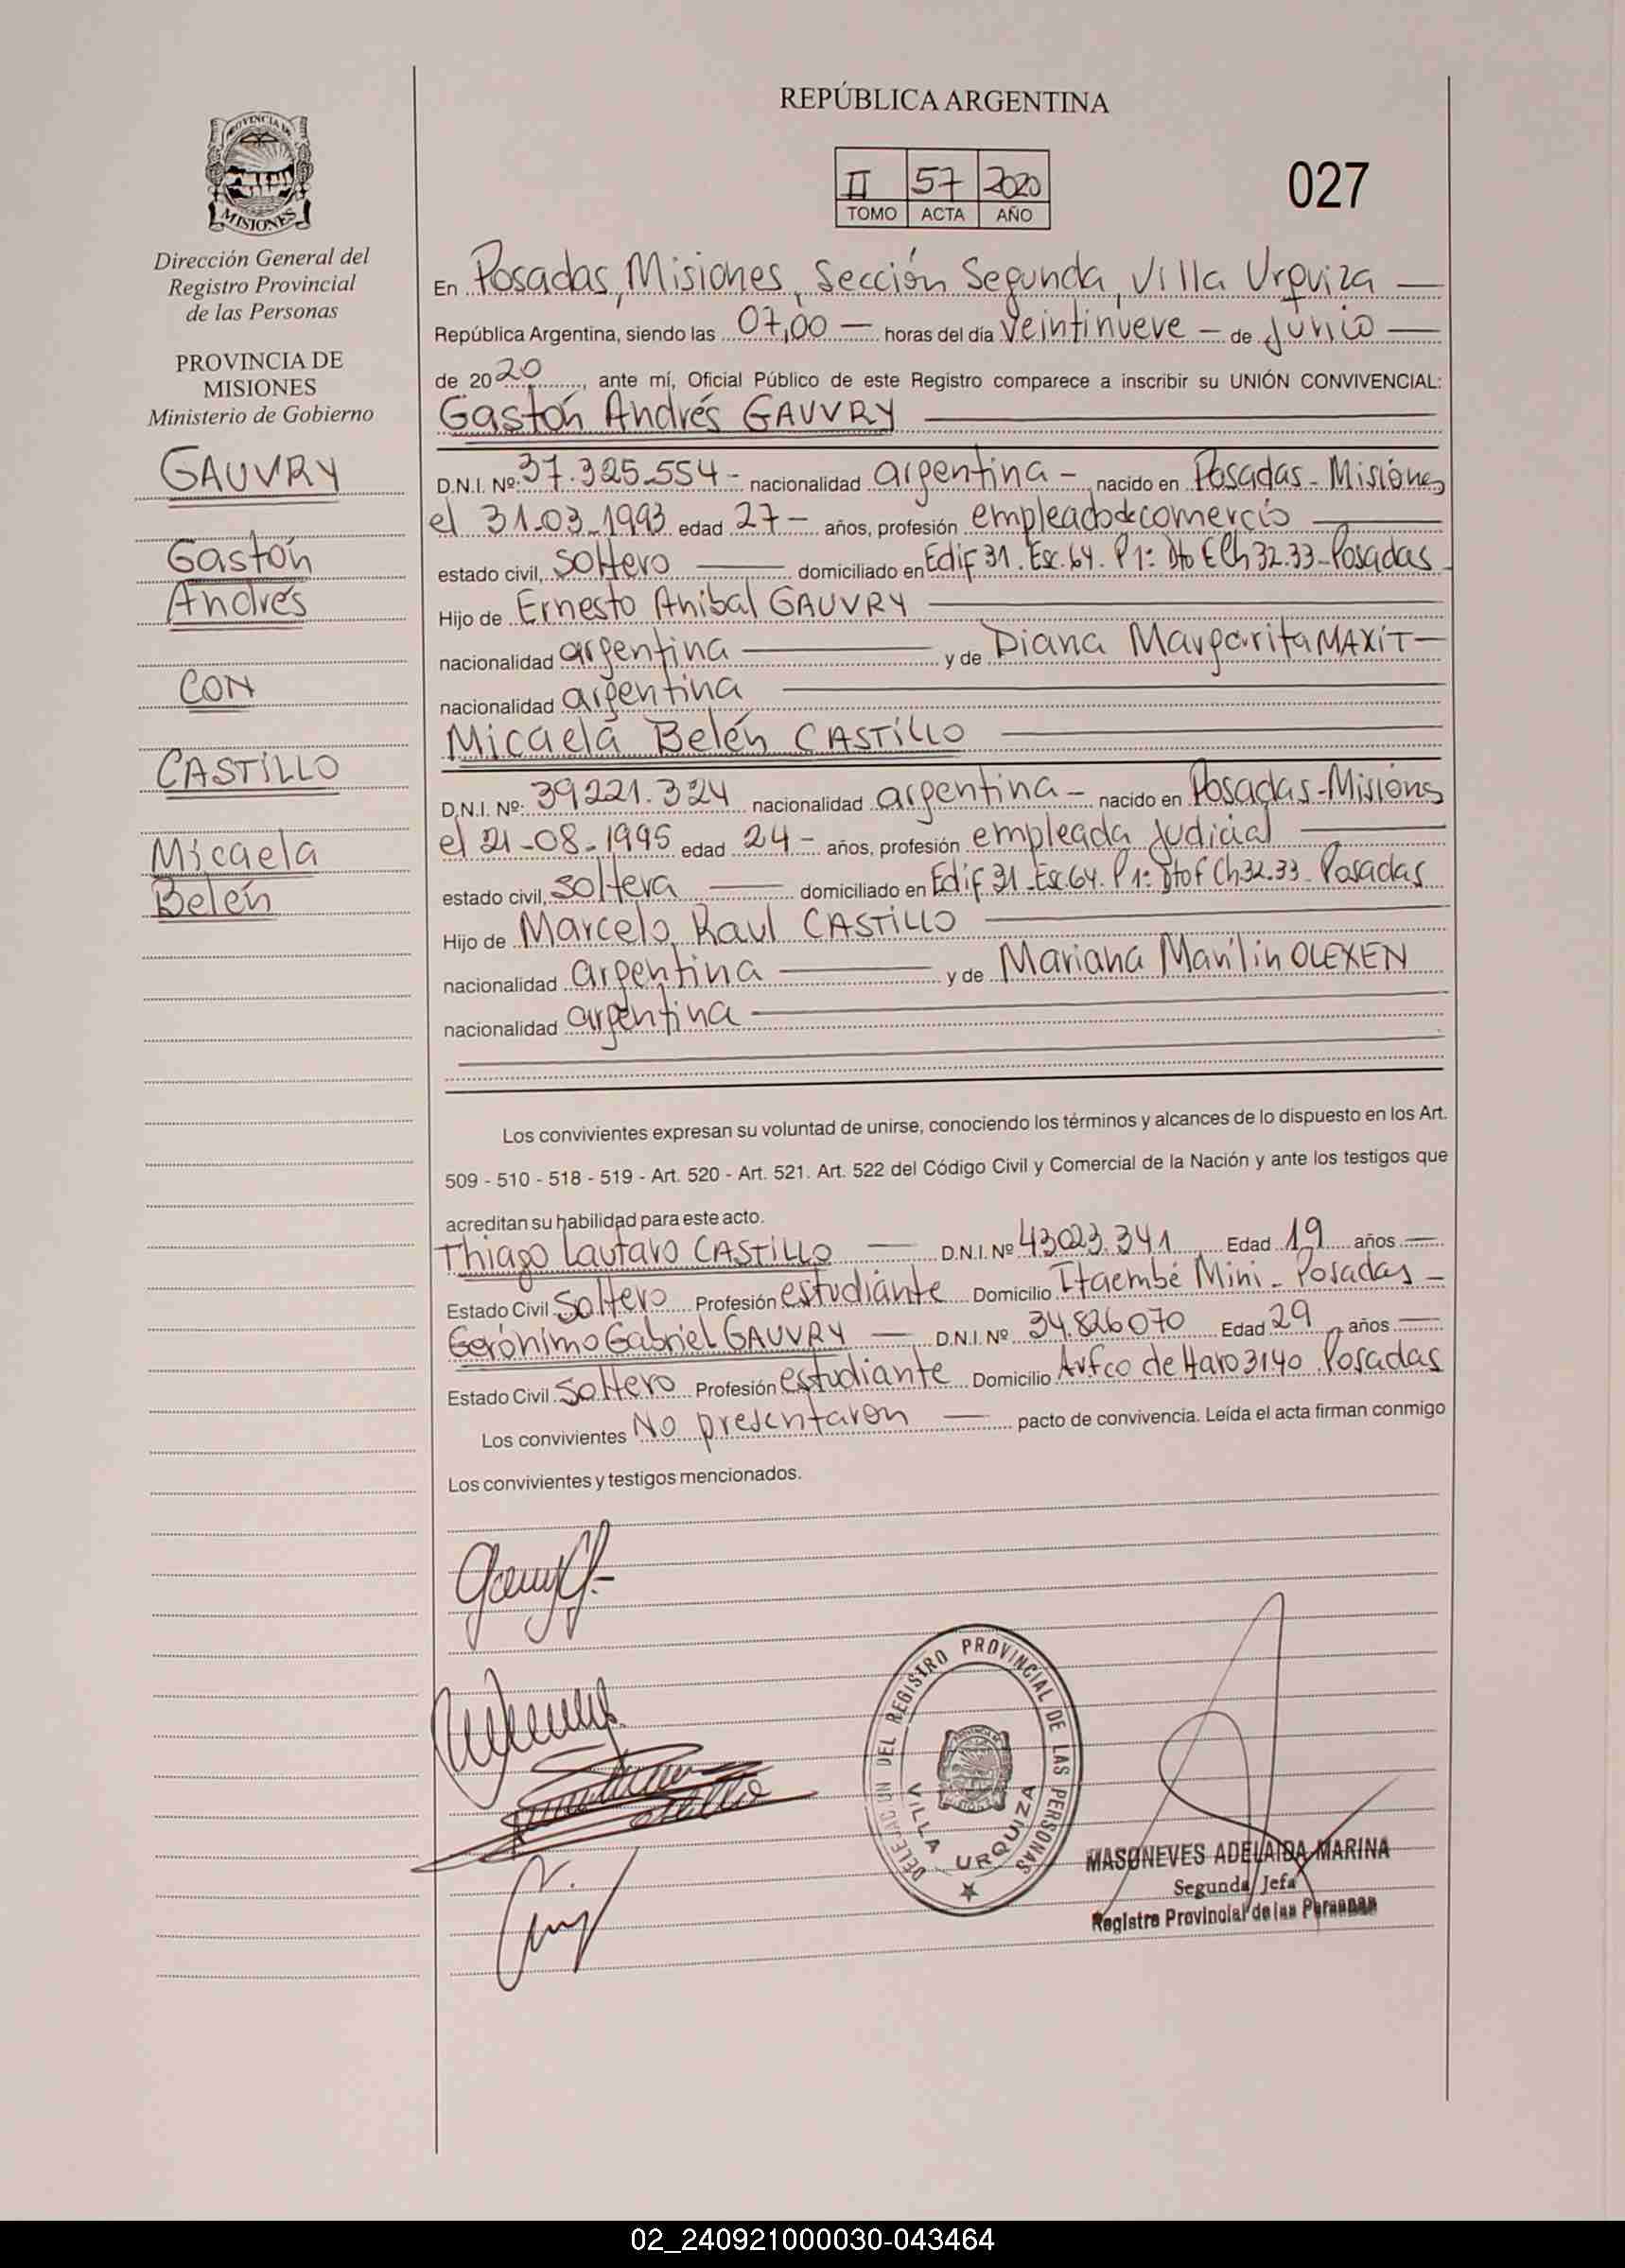 REPÚBLICA ARGENTINA
II 57 2020
TOMO ACTA AÑO
027
PROVINCIA DE
MISIONES
Dirección General del
Registro Provincial
de las Personas
PROVINCIA DE
MISIONES
Ministerio de Gobierno
GAUVRY
Gastón
Andrés
CON
CASTILLO
Micaela
Belén
En Posadas, Misiones, Sección Segunda, Villa Urquiza —
República Argentina, siendo las 07,00 — horas del día veintinueve — de Junio —
de 2020, ante mí, Oficial Público de este Registro comparece a inscribir su UNIÓN CONVIVENCIAL:
Gastón Andrés GAUVRY —
D.N.I. Nº 37.325.554 - nacionalidad argentina - nacido en Posadas - Misiónes
el 31-03-1993 edad 27 - años, profesión empleado de comercio —
estado civil, soltero — domiciliado en Edif 31. Esc. 64. P 1º Dto E Ch 32.33 - Posadas
Hijo de Ernesto Anibal GAUVRY —
nacionalidad argentina — y de Diana Margarita MAXIT —
nacionalidad argentina —
Micaela Belén CASTILLO —
D.N.I. Nº: 39221.324 nacionalidad argentina - nacido en Posadas - Misións
el 21-08-1995 edad 24 - años, profesión empleada Judicial —
estado civil, soltera — domiciliado en Edif 31 - Esc. 64. P 1º Dto f Ch 32.33 - Posadas
Hijo de Marcelo Raul CASTILLO —
nacionalidad argentina — y de Mariana OLEXEN
nacionalidad argentina —
Los convivientes expresan su voluntad de unirse, conociendo los términos y alcances de lo dispuesto en los Art.
509 - 510 - 518 - 519 - Art. 520 - Art. 521. Art. 522 del Código Civil y Comercial de la Nación y ante los testigos que
acreditan su habilidad para este acto.
Thiago Lautaro CASTILLO — D.N.I. Nº 43023.341 Edad 19 años —
Estado Civil Soltero Profesión estudiante Domicilio Itaembé Mini - Posadas —
Gerónimo Gabriel GAUVRY — D.N.I. Nº 34.826070 Edad 29 años —
Estado Civil Soltero Profesión estudiante Domicilio de Haro 3140 Posadas
Los convivientes No presentaron — pacto de convivencia. Leída el acta firman conmigo
Los convivientes y testigos mencionados.
DEL REGISTRO PROVINCIAL DE LAS PERSONAS
VILLA URQUIZA
MASONEVES ADELAIDA MARINA
Segunda Jefa
Registro Provincial de las Personas
02_240921000030-043464